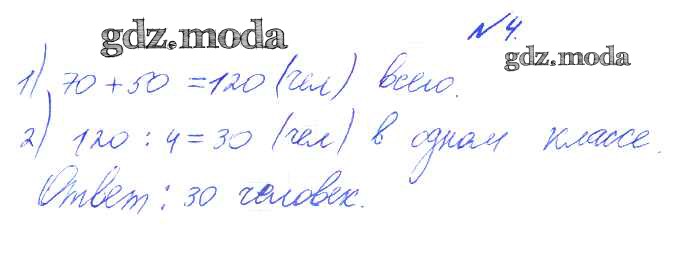 gdz.moda
№ 4.
gdz.moda
1) 70 + 50 = 120 (чел) всего.
2) 120 : 4 = 30 (чел) в одном классе.
Ответ: 30 человек.